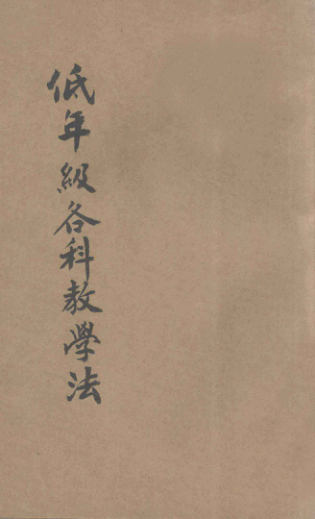 低年級各科教學法